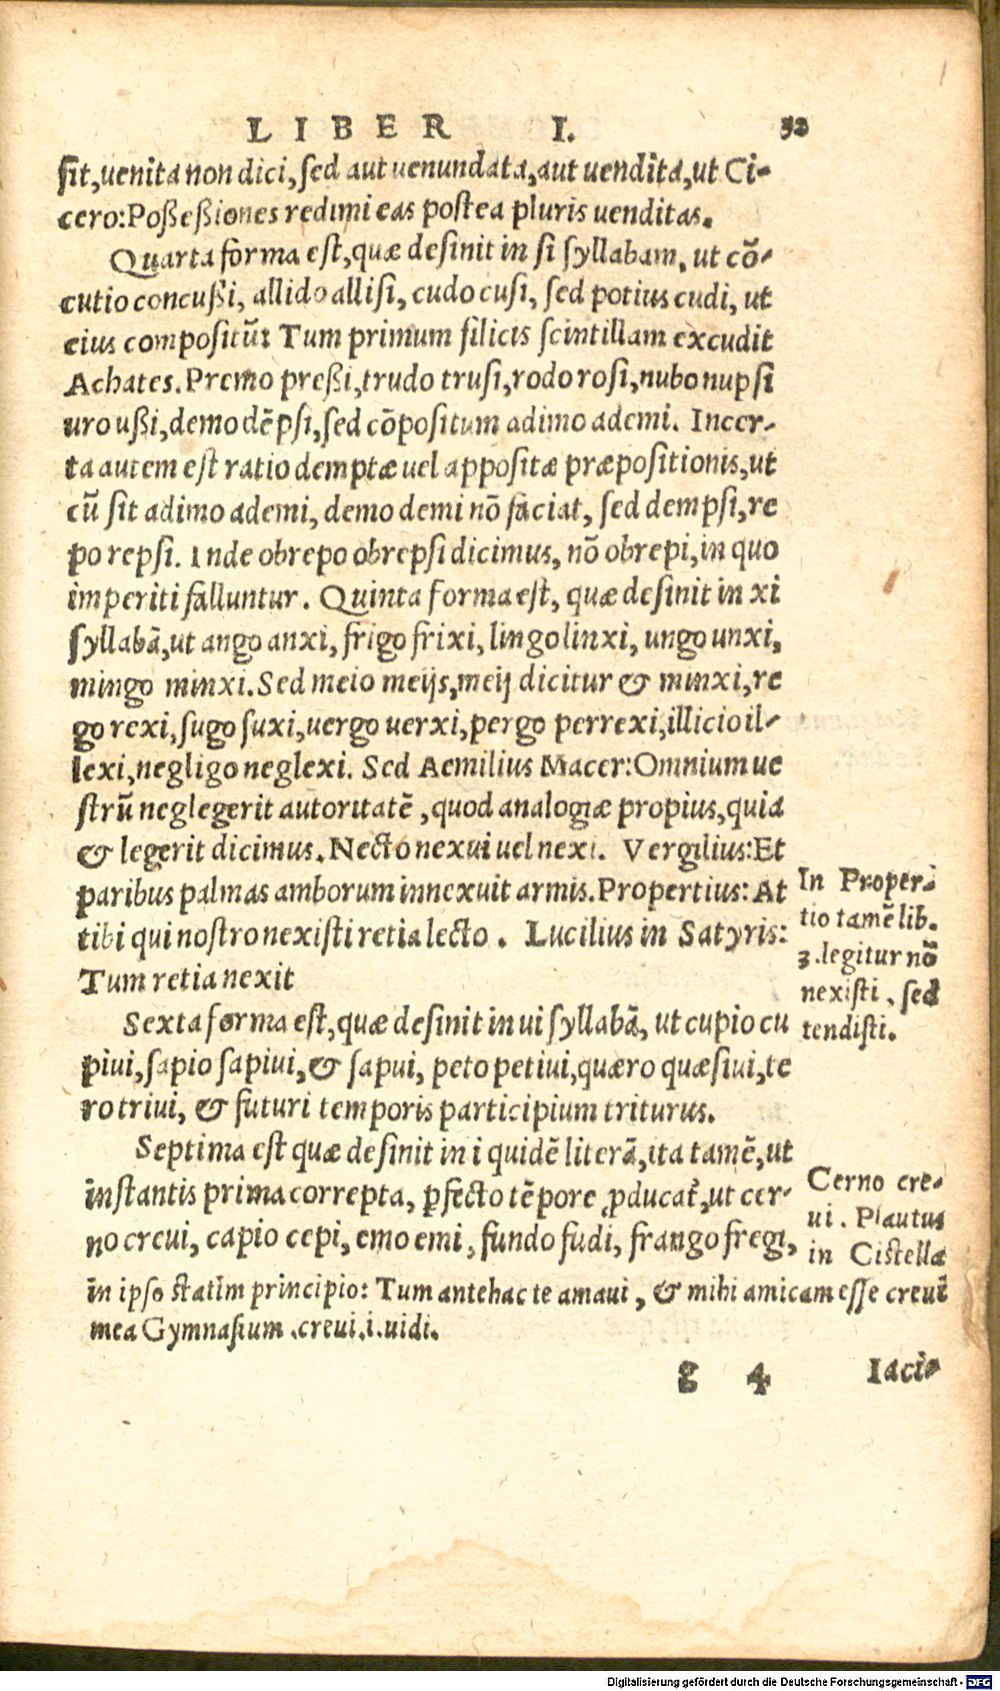 LIBER I. 52
sit, uenita non dici, sed aut uenundata, aut uendita, ut Ci-
cero: Poßeßiones redimi eas postea pluris uenditas.
Quarta forma est, quæ desinit in si syllabam, ut cō-
cutio concußi, allido allisi, cudo cusi, sed potius cudi, ut
eius compositū: Tum primum silicis scintillam excudit
Achates. Premo preßi, trudo trusi, rodo rosi, nubo nupsi
uro ußi, demo dēpsi, sed cōpositum adimo ademi. Incer-
ta autem est ratio demptæ uel appositæ præpositionis, ut
cū sit adimo ademi, demo demi nō faciat, sed dempsi, re
po repsi. Inde obrepo obrepsi dicimus, nō obrepi, in quo
imperiti falluntur. Quinta forma est, quæ desinit in xi
syllabā, ut ango anxi, frigo frixi, lingo linxi, ungo unxi,
mingo minxi. Sed meio meijs, meij dicitur & minxi, re
go rexi, sugo suxi, uergo uerxi, pergo perrexi, illicio il-
lexi, negligo neglexi. Sed Aemilius Macer: Omnium ue
strū neglegerit autoritatē, quod analogiæ propius, quia
& legerit dicimus. Necto nexui uel nexi. Vergilius: Et
paribus palmas amborum innexuit armis. Propertius: At
tibi qui nostro nexisti retia lecto. Lucilius in Satyris:
Tum retia nexit
In Proper-
tio tamē lib.
3. legitur nō
nexisti, sed
tendisti.
Sexta forma est, quæ desinit in ui syllabā, ut cupio cu
piui, sapio sapiui, & sapui, peto petiui, quæro quæsiui, te
ro triui, & futuri temporis participium triturus.
Septima est quæ desinit in i quidē literā, ita tamē, ut
instantis prima correpta, ꝑfecto tēpore ꝓducat̃, ut cer-
no creui, capio cepi, emo emi, fundo fudi, frango fregi,
Cerno cre-
ui. Plautus
in Cistella
in ipso statim principio: Tum antehac te amaui, & mihi amicam esse creui
mea Gymnasium. creui. i. uidi.
g 4 Iaci-
Digitalisierung gefördert durch die Deutsche Forschungsgemeinschaft - DFG